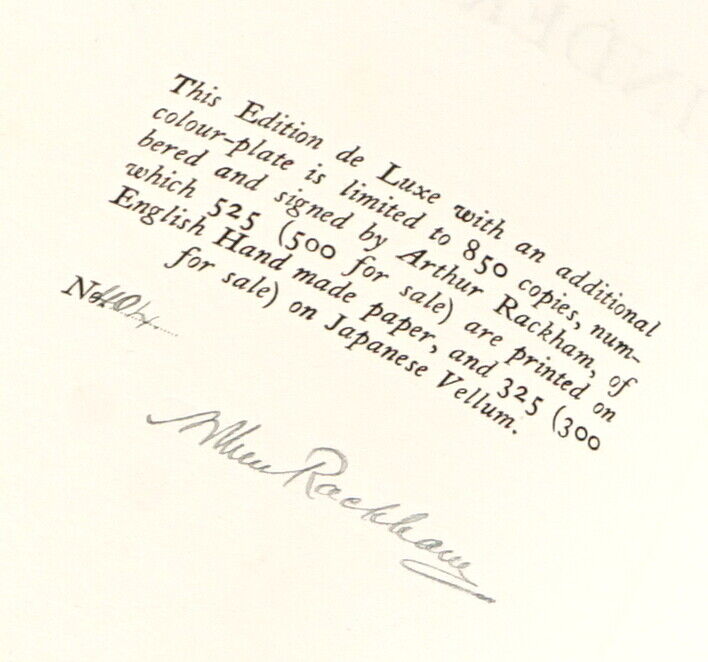 This Edition de Luxe with an additional
colour-plate is limited to 850 copies, num-
bered and signed by Arthur Rackham, of
which 525 (500 for sale) are printed on
English Hand made paper, and 325 (300
for sale) on Japanese Vellum.
No
Arthur Rackham